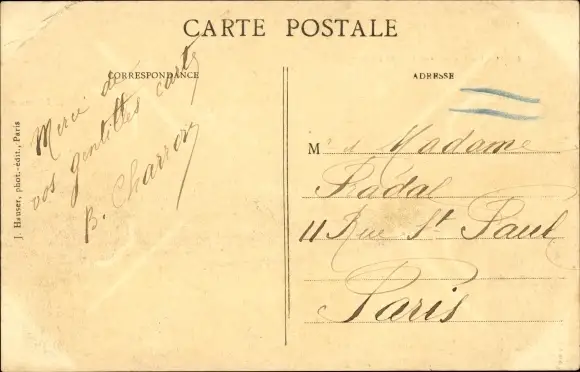 CARTE POSTALE
CORRESPONDANCE
ADRESSE
Merci de
vos gentilles cartes
B. Charrery
M et Madame
Radal
11 Rue St Paul
Paris
J. Hauser, phot.-édit., Paris